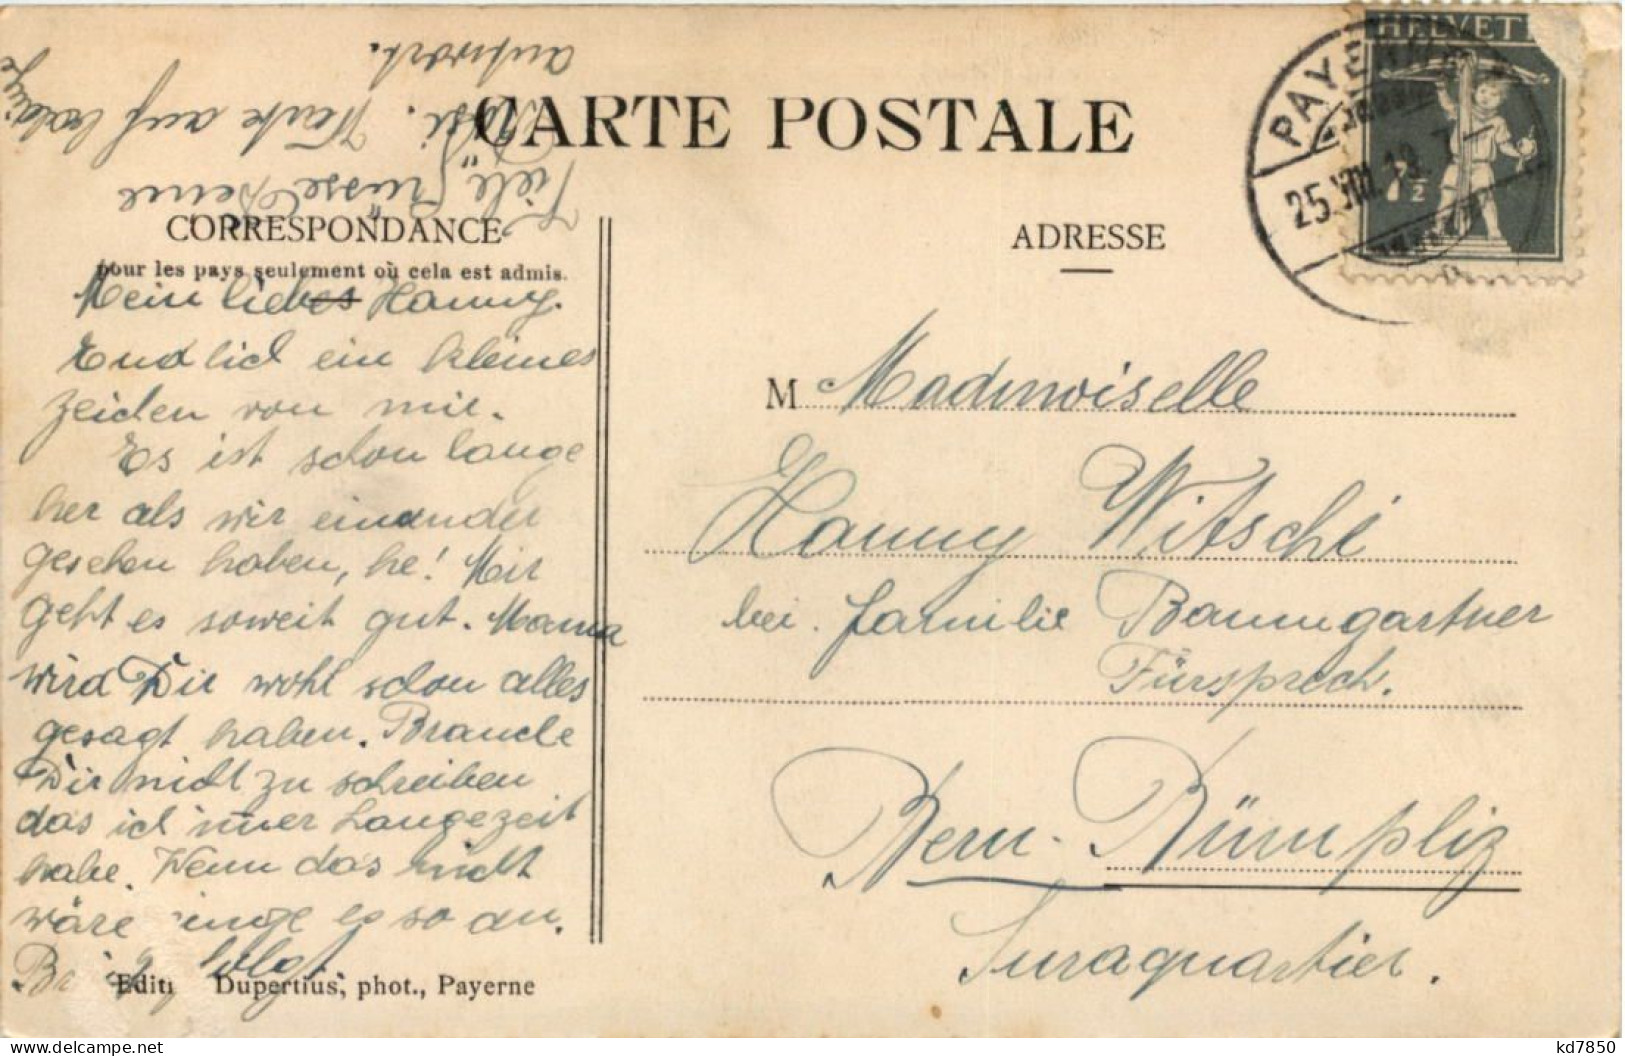 CARTE POSTALE
CORRESPONDANCE
pour les pays seulement où cela est admis.
ADRESSE
HELVETI
7½
PAYERNE
25.VIII.19. 7
Mein liebes Hanny.
Endlich ein kleines
Zeichen von mir.
Es ist schon lange
her als wir einander
gesehen haben, he! Mir
geht es soweit gut. Mama
wird Dir wohl schon alles
gesagt haben. Brauche
Dir nicht zu schreiben
das ich immer Langezeit
habe. Wenn das nicht
wäre ginge es so an.
Brief folgt.
Viele Grüsse Deine
Rösi. Warte auf baldige
antwort.
M Mademoiselle
Hanny Witschi
bei. Familie Baumgartner
Fürsprech.
Bern-Bümpliz
Juraquartier.
Editi Dupertius, phot., Payerne
kd7850